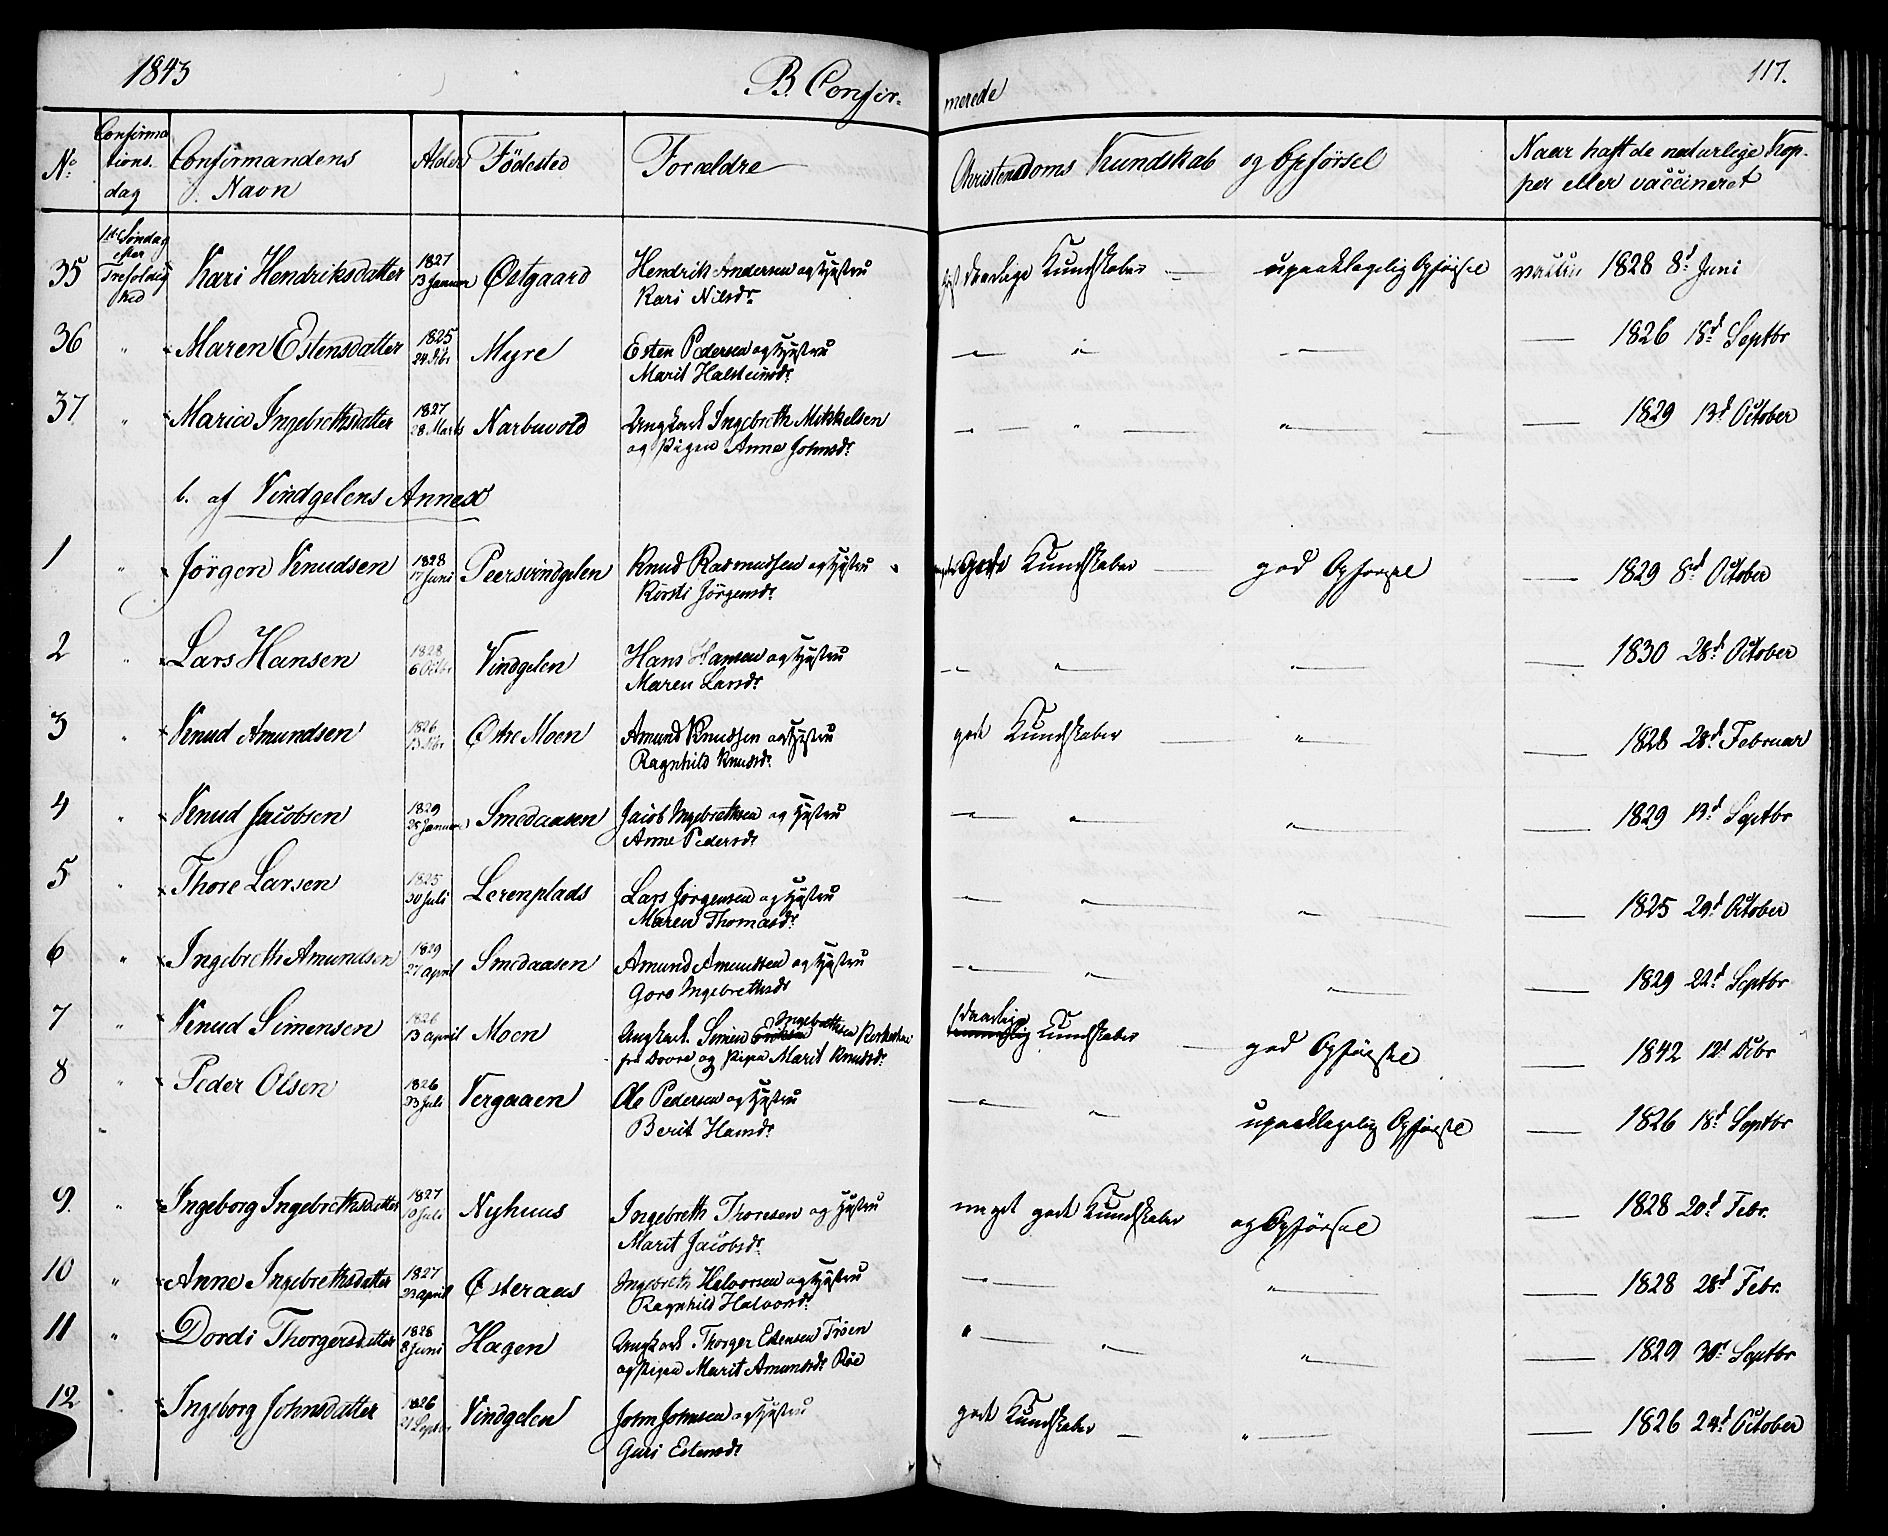 1843 B. Confir- merede 117.
No. Confirma- tions- dag Confirmandens Navn Alder Fødested Forældre Christendoms Kundskab og Opførsel Naar haft de naturlige Kop- per eller vaccineret
35 1ste Søndag efter Trefoldighed Kari Hendriksdatter 1827 13 Januar Østgaard Hendrik Andersen og Hustru daarlige Kundskaber — upaaklagelig Opførsel vaccin 1828 8d Juni
Kari Nilsdr
36 " Maren Estensdatter 1825 Myre Esten Pedersen og Hustru — " — — — 1826 18d Septbr
Marit Halsteinsdr
37 " Maria Ingebrethsdatter 1827 28 Marts Narbuvold Ungkarl Ingebreth Mikkelsen — " — " — — 1829 13d October
og Pigen Anne Johnsdr
b. af Vindgelens Annex
1 " Jörgen Knudsen 1828 17 Juni Peersvindgelen Knud Rasmussen og Hustru gode Kundskaber — god Opførsel — 1829 8d October
Kirsti Jörgensdr
2 " Lars Hansen 1828 6 Octbr Vindgelen Hans Hansen og Hustru — " — " — — 1830 28d October
Maren Larsdr
3 " Knud Amundsen 1826 Østre Moen Amund Knudsen og Hustru godt Kundskaber — " — — 1828 28d Februar
Ragnhild Knudsdr
4 " Knud Jacobsen 1829 25 Januar Smedaasen Jacob Ingebrethsen og Hustru — " — " — — 1829 13d Septbr
Anne Pedersdr
5 " Thore Larsen 1825 30 Juli Lerenplads Lars Jörgensen og Hustru — " — " — — 1825 29d October
Maren Thomasdr
6 " Ingebreth Amundsen 1829 27 April Smedaasen Amund Amundsen og Hustru — " — " — — 1829 22d Septbr
Goro Ingebrethsdr
7 " Knud Simensen 1826 13 April Moen Ungkarl Simen Ingebrethsen daarlige Kundskaber — god Opførsel — 1842 12d Dcbr
fra Dovre og Pige Marit Knudsdr
8 " Peder Olsen 1826 23 Juli Vergaaen Ole Pedersen og Hustru — " — upaaklagelig Opførsel — 1826 18d Septbr
Berit Hansdr
9 " Ingeborg Ingebrethsdatter 1827 10 Juli Nyhuus Ingebreth Thoresen og Hustru meget godt Kundskaber og Opførsel — 1828 20d Febr.
Marit Jacobsdr
10 " Anne Ingebrethsdatter 1827 23 April Østeraas Ingebreth Halvorsen og Hustru — " — — 1828 28d Febr.
Ragnhild Halvorsdr
11 " Dordi Thorgersdatter 1828 8 Juni Hagen Ungkarl Thorger Estensen Trøen " — " — " — — 1829 30d Septbr
og Pigen Marit Amundsdr Røe
12 " Ingeborg Johnsdatter 1826 21 Septbr Vindgelen John Johnsen og Hustru godt Kundskaber — " — — 1826 24d October
Guri Estensdr